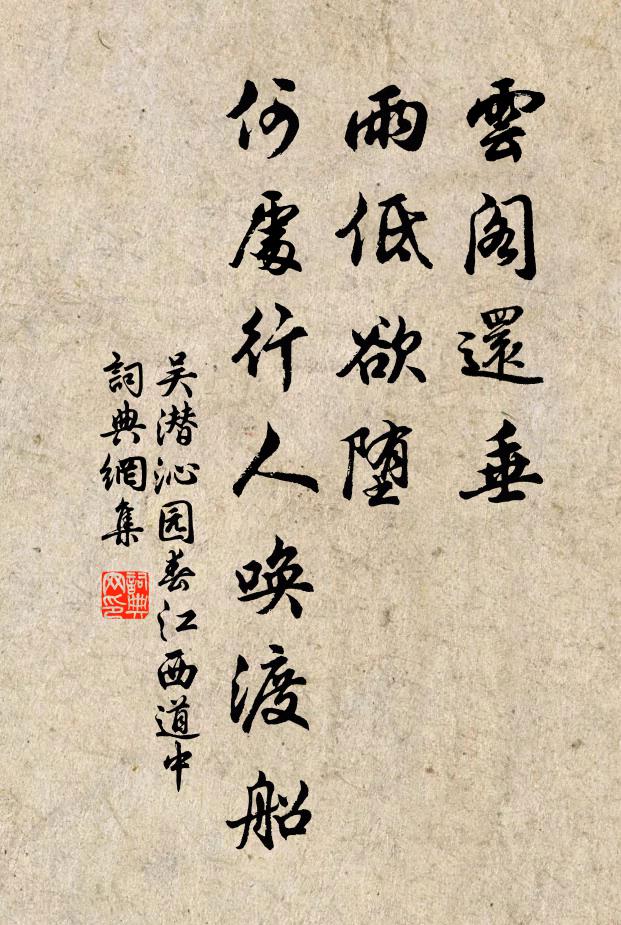 雲閣還垂
雨低欲堕
何處行人喚渡船
吴潜沁园春江西道中
詞典網集
詞典
网印